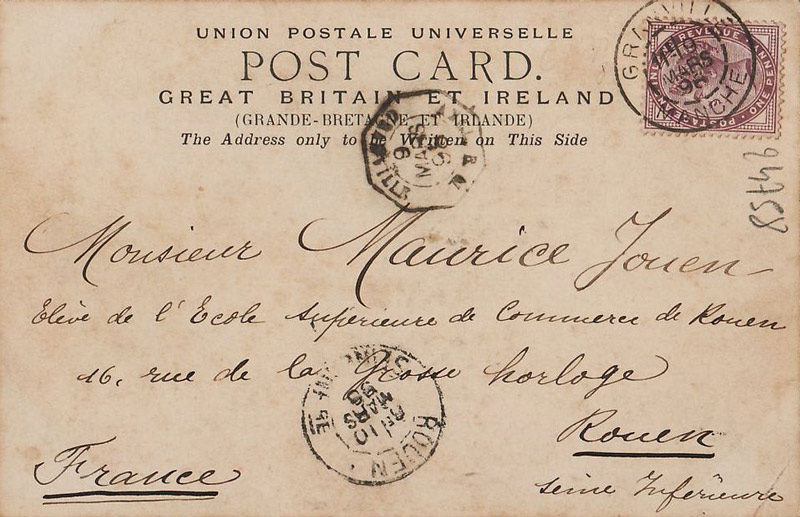 UNION POSTALE UNIVERSELLE
POST CARD.
GREAT BRITAIN ET IRELAND
(GRANDE-BRETAGNE ET IRLANDE)
The Address only to be Written on This Side
GRANVILLE
MARS
MANCHE
POSTAGE AND INLAND REVENUE
MARS
94758
Monsieur Maurice Jouen
Elève de l'Ecole Supérieure de Commerce de Rouen
16, rue de la Grosse horloge
Rouen
France
Seine Inférieure
ROUEN
10
MARS